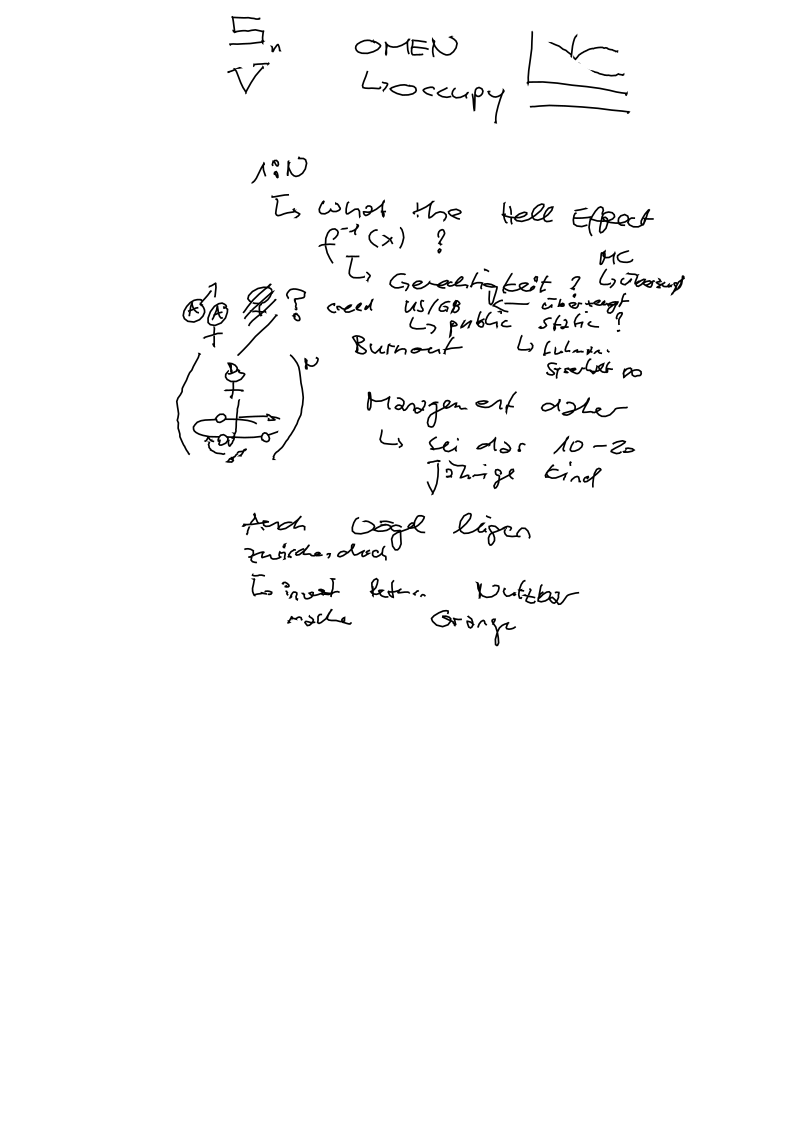 Sn OMEN
V ↳ Occupy
1:N
↳ What the Hell Effect
f⁻¹(x) ?
MC
↳ Gerechtigkeit ?
A A ? creed US/GB ← überzeugt
↳ public static ?
Burnout
N
Management daher
↳ sei das 10-20
jährige Kind
Auch Vögel lügen
zwischendoch
↳ invest return Nutzbar
mache Orange